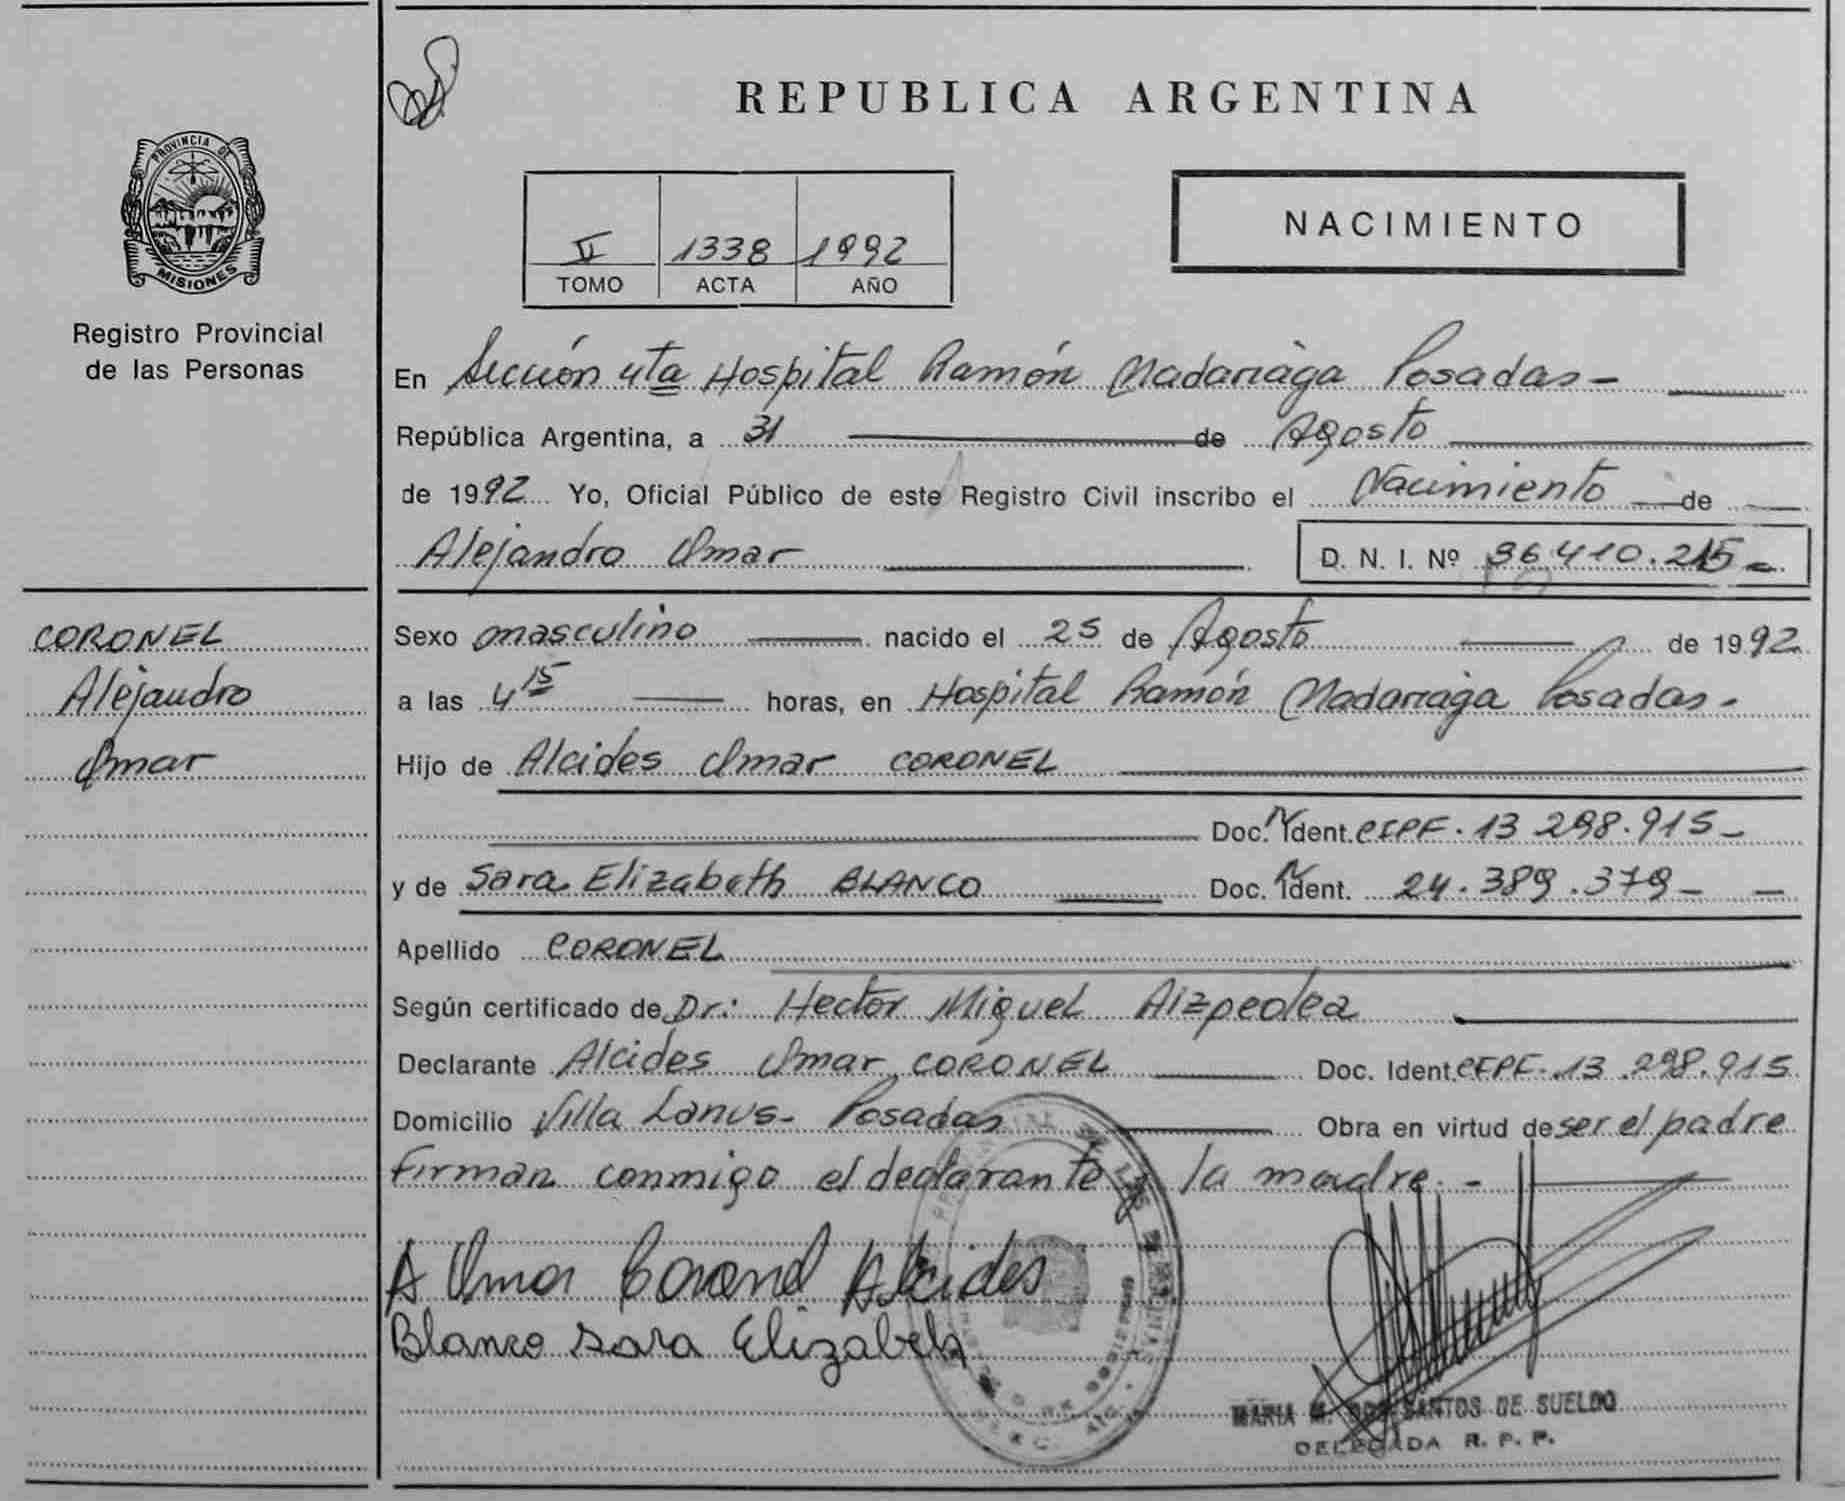 REPUBLICA ARGENTINA
PROVINCIA DE
MISIONES
Registro Provincial
de las Personas
NACIMIENTO
II 1338 1992
TOMO ACTA AÑO
En Sección 4ta Hospital Ramón Madariaga Posadas-
República Argentina, a 31 de Agosto
de 1992 Yo, Oficial Público de este Registro Civil inscribo el Nacimiento de
Alejandro Omar D. N. I. Nº 36.410.215-
CORONEL
Alejandro
Omar
Sexo masculino nacido el 25 de Agosto de 1992
a las 4 15 horas, en Hospital Ramón Madariaga Posadas-
Hijo de Alcides Omar CORONEL
Doc. Ident. CIPF. 13 298.915-
y de Sara Elizabeth BLANCO Doc. Ident. 24.389.379-
Apellido CORONEL
Según certificado de Dr: Hector Miguel Aizpeolea
Declarante Alcides Omar CORONEL Doc. Ident. CIPF. 13.298.915
Domicilio Villa Lanus- Posadas Obra en virtud de ser el padre
Firman conmigo el declarante y la madre.-
A Omar Coronel Alcides
Blanco Sara Elizabeth
MARIA M. DOS SANTOS DE SUELDO
DELEGADA R. P. P.